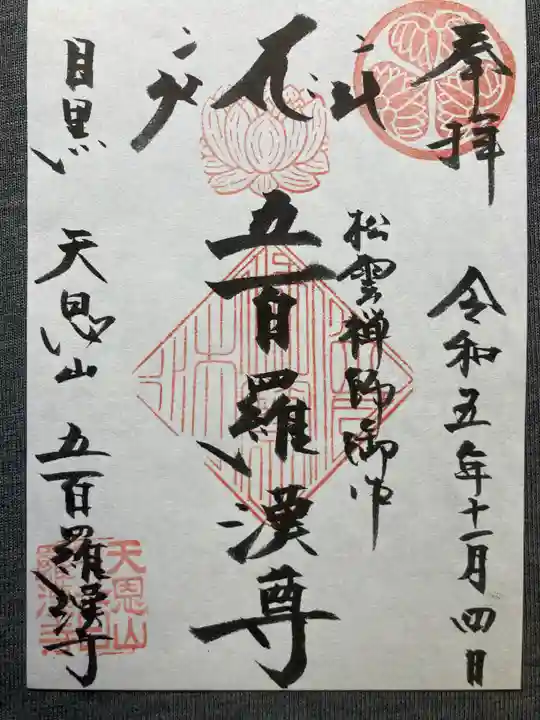 奉拝
令和五年十一月四日
松雲禅師御作
五百羅漢尊
目黒 天恩山 五百羅漢寺
天恩山